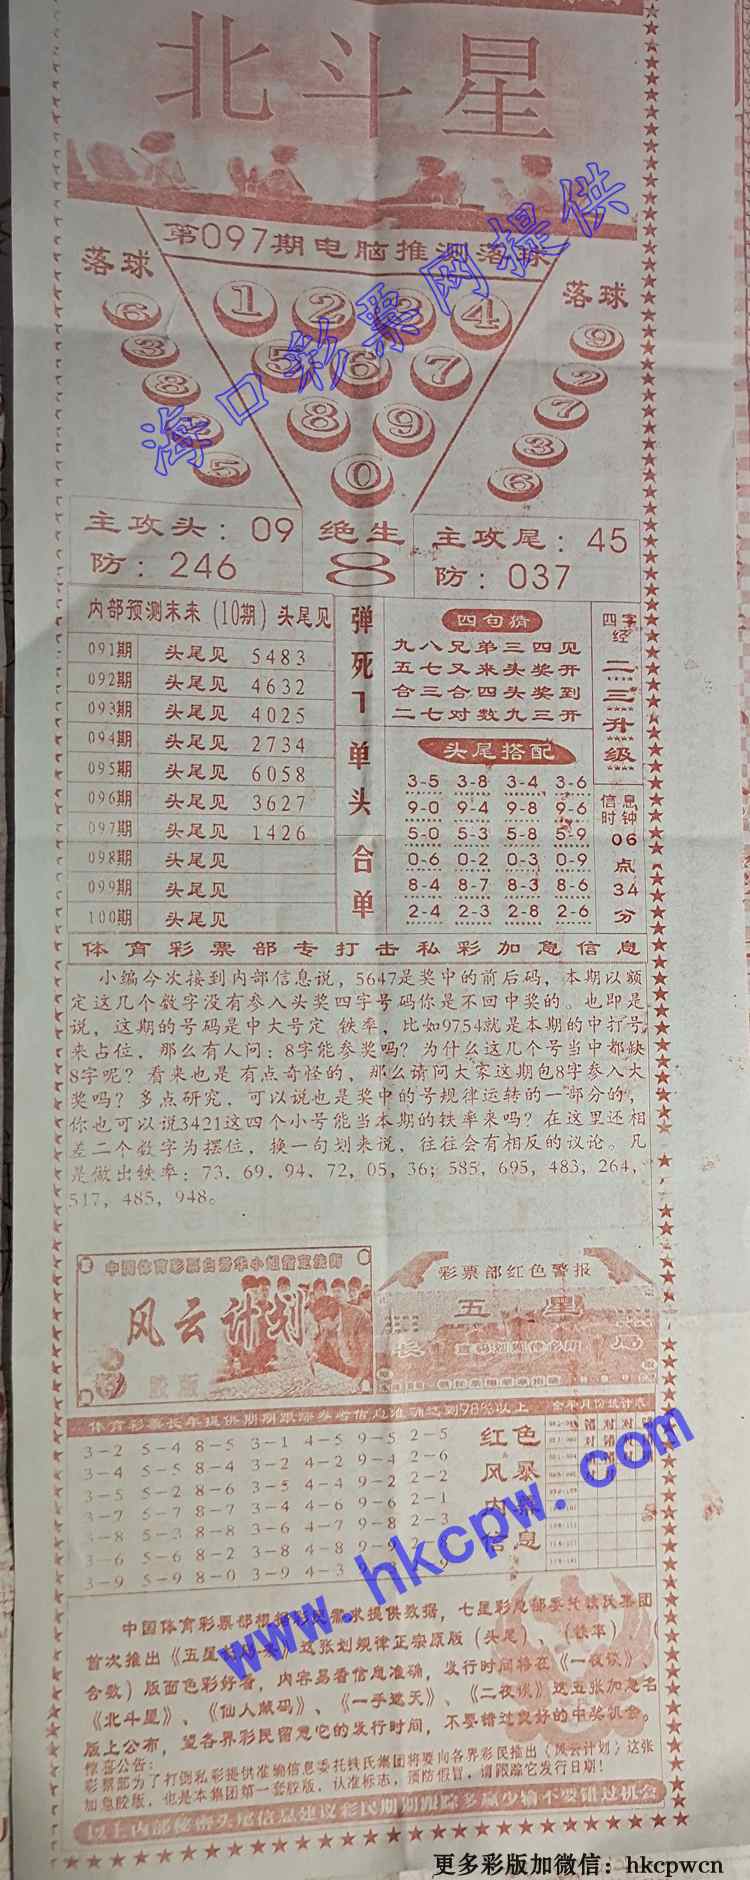 北斗星
第097期电脑推测落球
落球
落球
6
3
8
5
1 2 3 4
5 6 7
8 9
0
9
2
7
3
6
海口彩票网提供
主攻头：09
防：246
绝生
8
主攻尾：45
防：037
内部预测末来(10期)头尾见
091期 头尾见 5483
092期 头尾见 4632
093期 头尾见 4025
094期 头尾见 2734
095期 头尾见 6058
096期 头尾见 3627
097期 头尾见 1426
098期 头尾见
099期 头尾见
100期 头尾见
弹死7单头合单
四句猜
九八兄弟三四见
五七又来头奖开
合三合四头奖到
二七对数九三开
头尾搭配
3-5 3-8 3-4 3-6
9-0 9-4 9-8 9-6
5-0 5-3 5-8 5-9
0-6 0-2 0-3 0-9
8-4 8-7 8-3 8-6
2-4 2-3 2-8 2-6
四字经
二三升级
信息时钟
06点34分
体育彩票部专打击私彩加急信息
小编今次接到内部信息说，5647是奖中的前后码，本期以额
定这几个数字没有参入头奖四字号码你是不回中奖的。也即是
说，这期的号码是中大号定 铁率，比如9754就是本期的中打号
来占位，那么有人问：8字能参奖吗？为什么这几个号当中都缺
8字呢？看来也是有点奇怪的，那么请问大家这期包8字参入大
奖吗？多点研究，可以说也是奖中的号规律运转的一部分的，
你也可以说3421这四个小号能当本期的铁率来吗？在这里还相
差二个数字为摆位，换一句划来说，往往会有相反的议论。凡
是做出铁率：73，69，94，72，05，36；585，695，483，264，
517，485，948。
风云计划
胶版
彩票部红色警报
五星
长
局
体育彩票长年提供期期跟踪参考信息准确达到98%以上
3-2 5-4 8-5 3-1 4-5 9-5 2-5
3-4 5-5 8-4 3-2 4-2 9-4 2-6
3-5 5-2 8-6 3-5 4-4 9-2 2-2
3-7 5-7 8-7 3-4 4-6 9-6 2-1
3-8 5-3 8-8 3-6 4-7 9-8 2-3
3-6 5-6 8-2 3-8 4-8 9-9
3-9 5-9 8-0 3-9 4-3
红色
风暴
内幕
信息
www.hkcpw.com
中国体育彩票部根据彩民需求提供数据，七星彩总部委托铁氏集团
首次推出《五星长局》这张划规律正宗原版（头尾）、（铁率）
合数）版面色彩好看，内容易看信息准确，发行时间将在《一夜谈》
《北斗星》、《仙人献码》、《一手遮天》、《二夜谈》这五张加急名
版上公布，望各界彩民留意它的发行时间，不要错过良好的中奖机会。
惊喜公告：
彩票部为了打倒私彩提供准输信息委托铁氏集团将要向各界彩民推出《风云计划》这张
加急胶版，也是本集团第一套胶版，认准标志，预防假冒，请跟踪它发行日期！
以上内部秘密头尾信息建议彩民期期跟踪多赢少输不要错过机会
更多彩版加微信：hkcpwcn